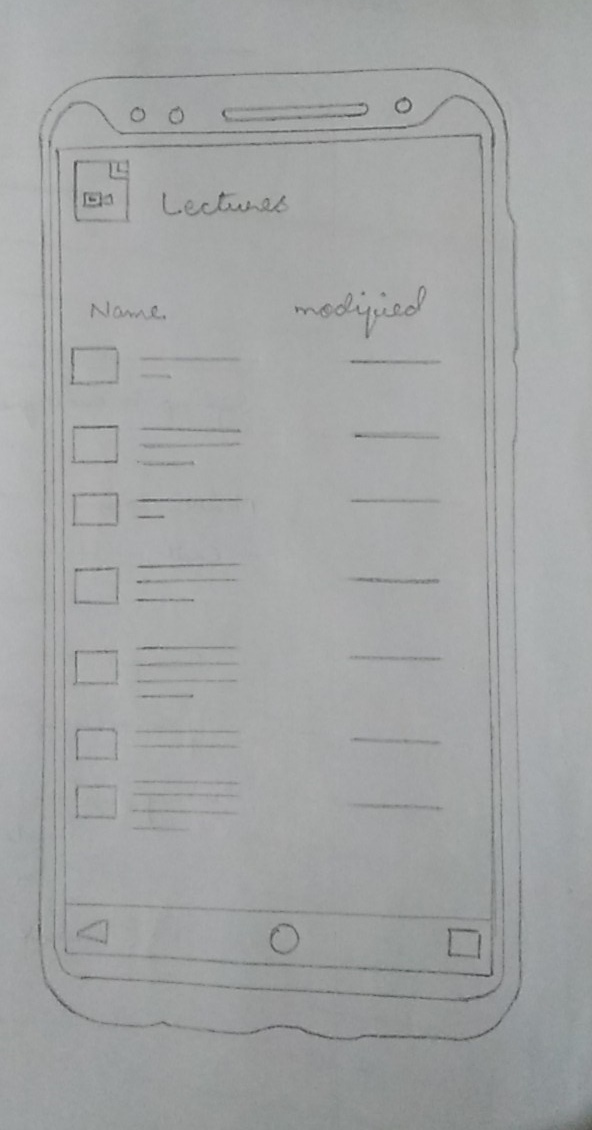 Lectures
Name. modified